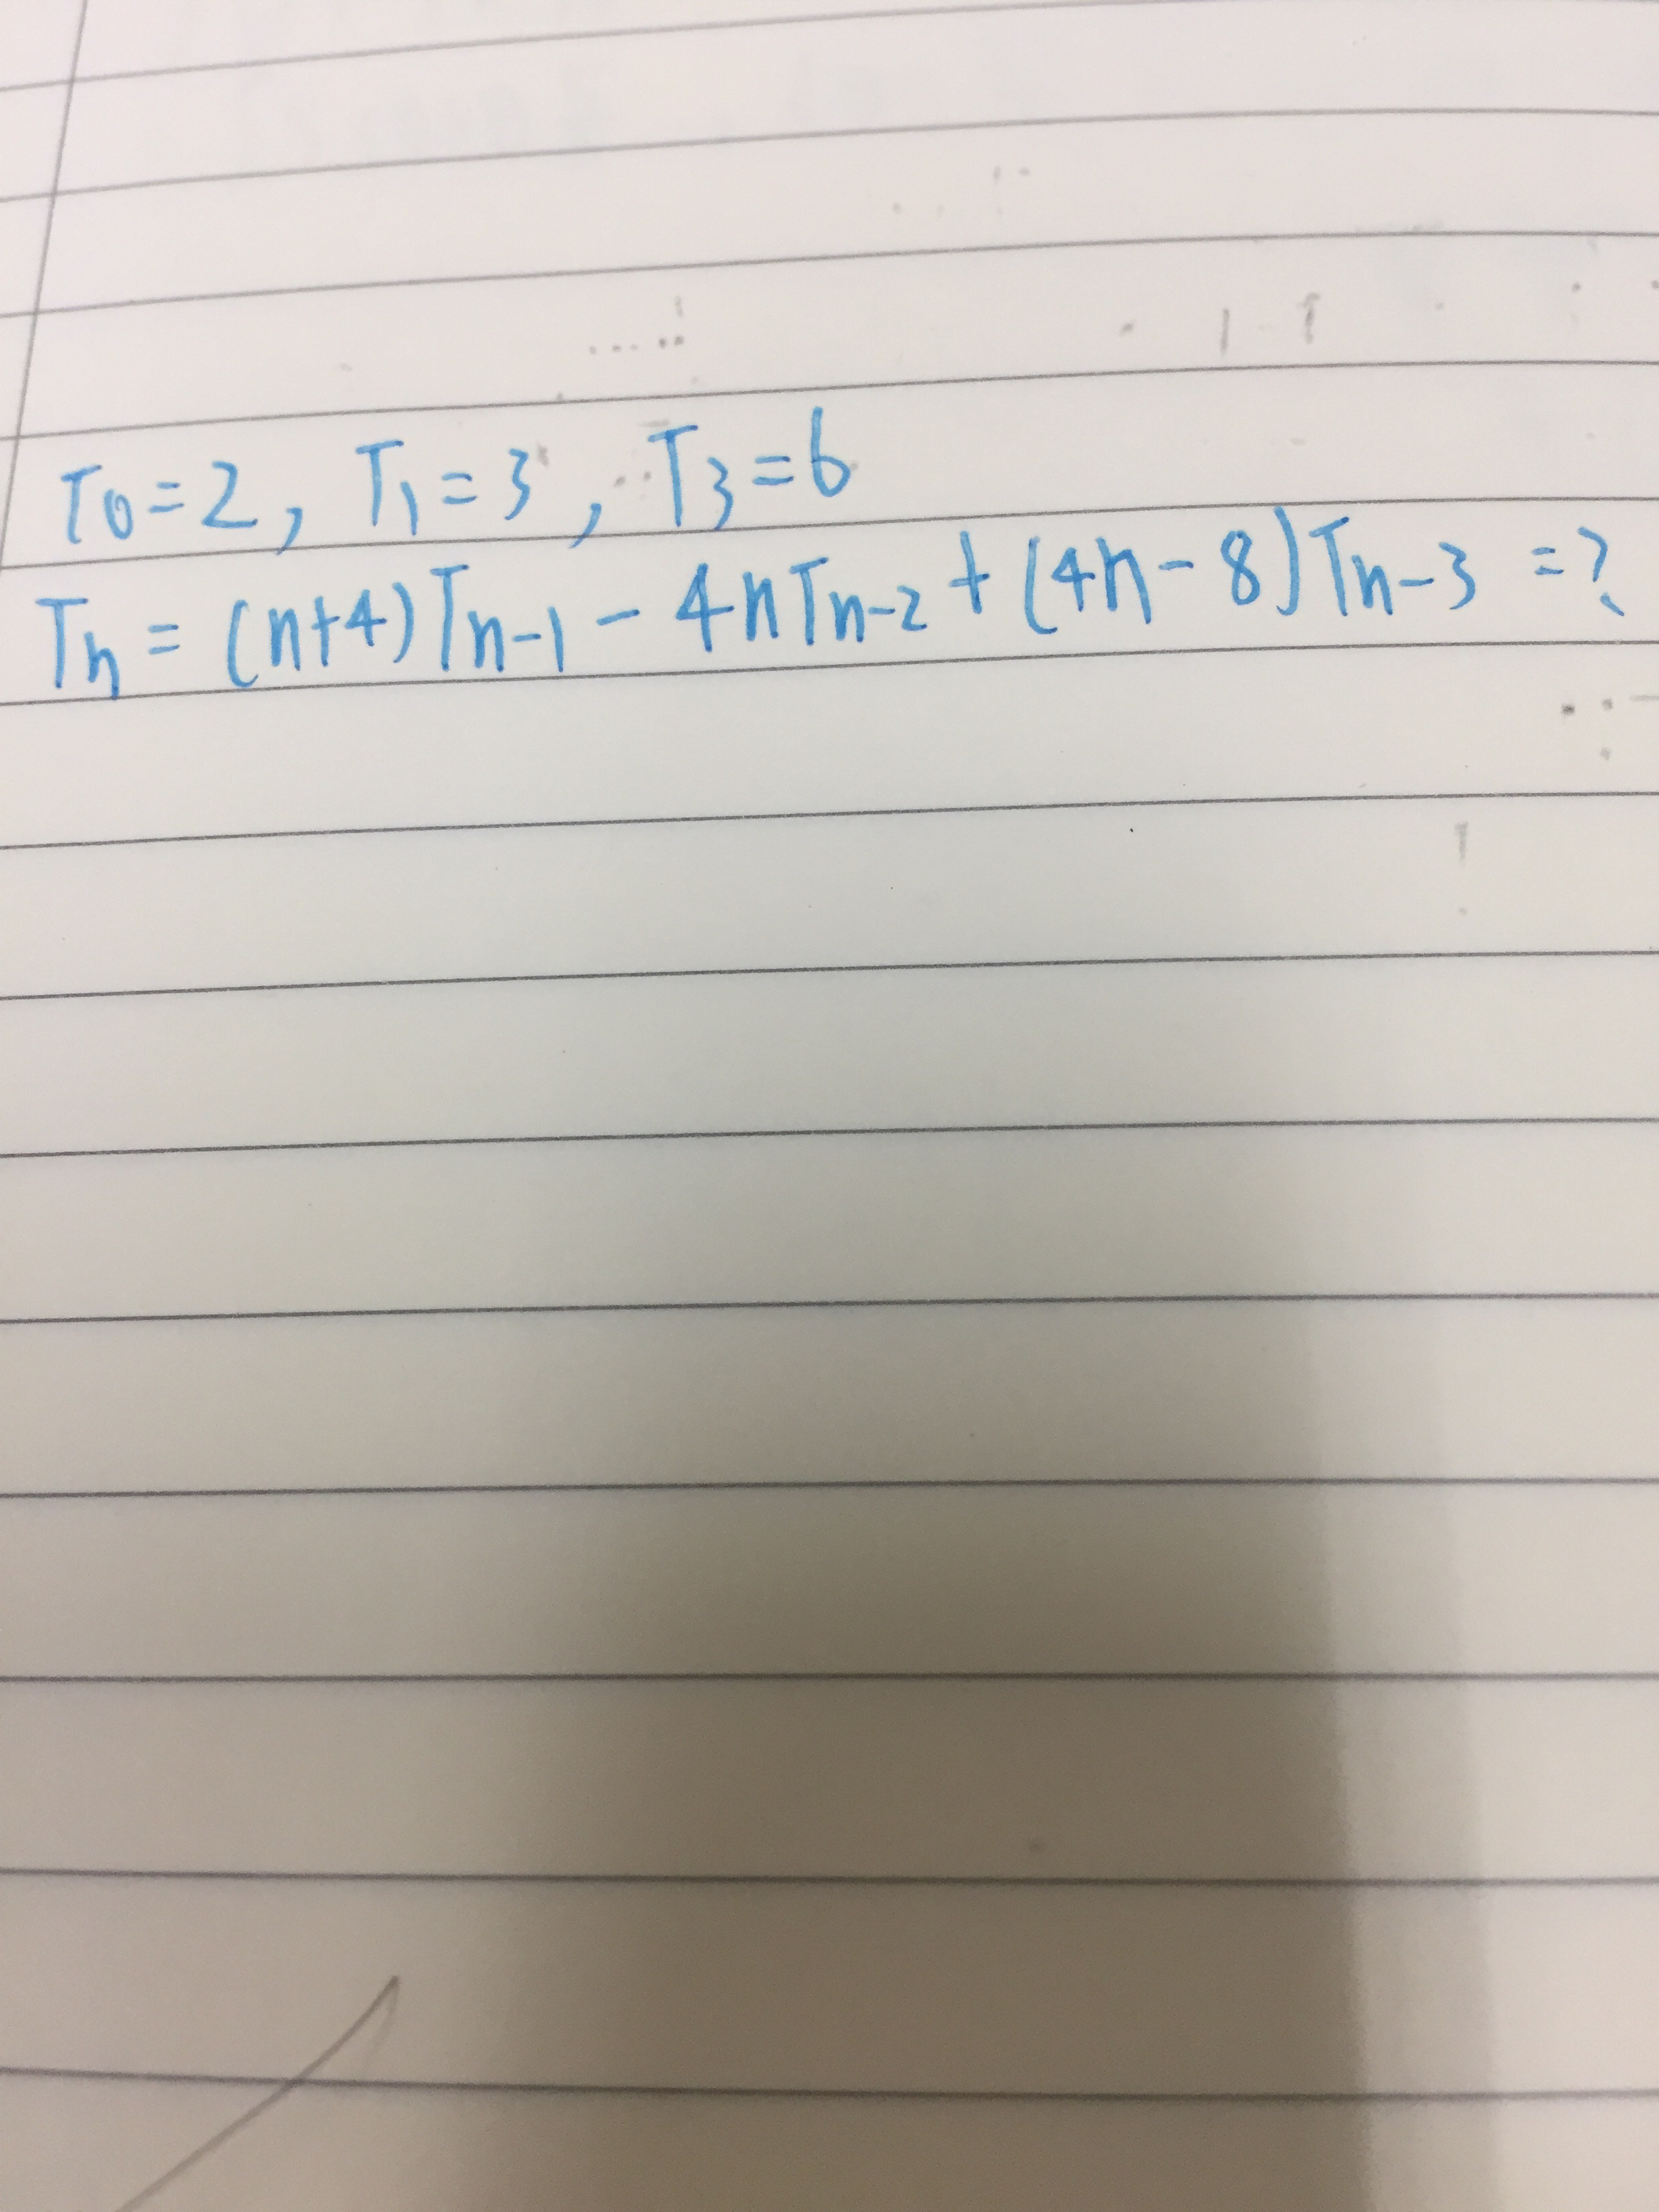 T₀=2, T₁=3, T₃=6
Tₙ = (n+4)Tₙ₋₁ - 4nTₙ₋₂ + (4n-8)Tₙ₋₃ =?